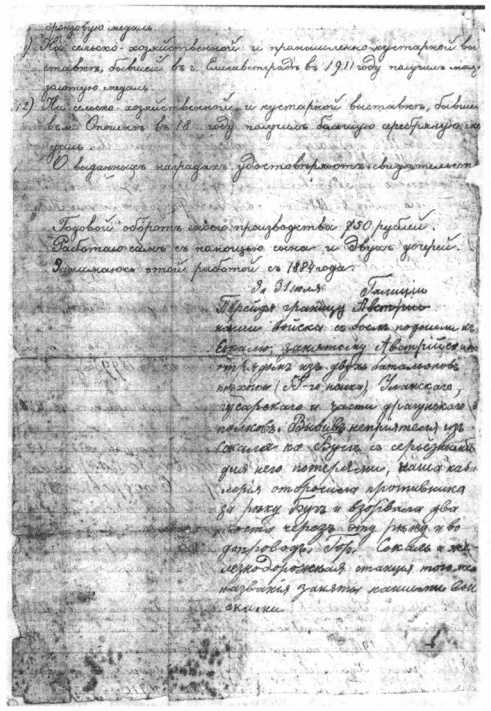 бронзовую медаль
1) На сельско-хозяйственной и промышленно-кустарной вы
ставкѣ, бывшей въ г. Елисаветградѣ въ 1911 году получилъ мал.
золотую медаль
12) На сельско-хозяйственной и кустарной выставкѣ, бывшей
въ м. Опошнѣ въ 18 году получилъ большую серебряную ме
даль
О выданныхъ наградахъ удостовѣряютъ свидѣтельст
Годовой оборотъ моего производства 750 рублей.
Работаю самъ съ помощью сына и двухъ дочерей.
Занимаюсь этой работой съ 1884 года.
31 июля Галиции
Перейдя границу Австрии
наши войска съ боемъ подошли къ
Сокалю, занятому Австрійскимъ
отрядомъ изъ двухъ батальоновъ
пѣхоты полка) Уланскаго,
гусарскаго и части драгунскаго
полковъ. Выбивъ неприятеля изъ
Сокаля по Бугъ съ серьёзными
для него потерями, наша кав
алерія отбросила противника
за рѣку Бугъ и взорвала два
моста черезъ эту рѣку и во
допроводъ. Гор. Сокаль и же
лезнодорожная станция того же
названія заняты нашими вой
сками